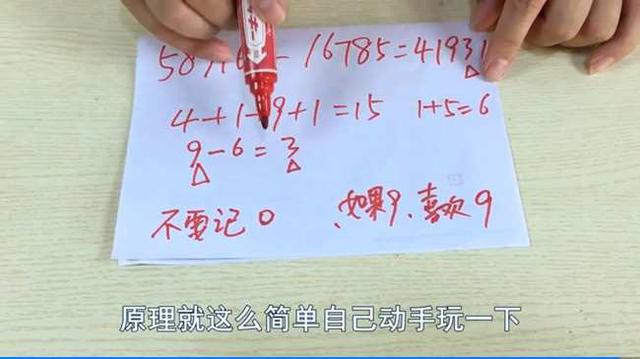 16785=41931
4+1+9+1=15 1+5=6
9-6=3
不要记0 如果9、喜欢9
原理就这么简单自己动手玩一下